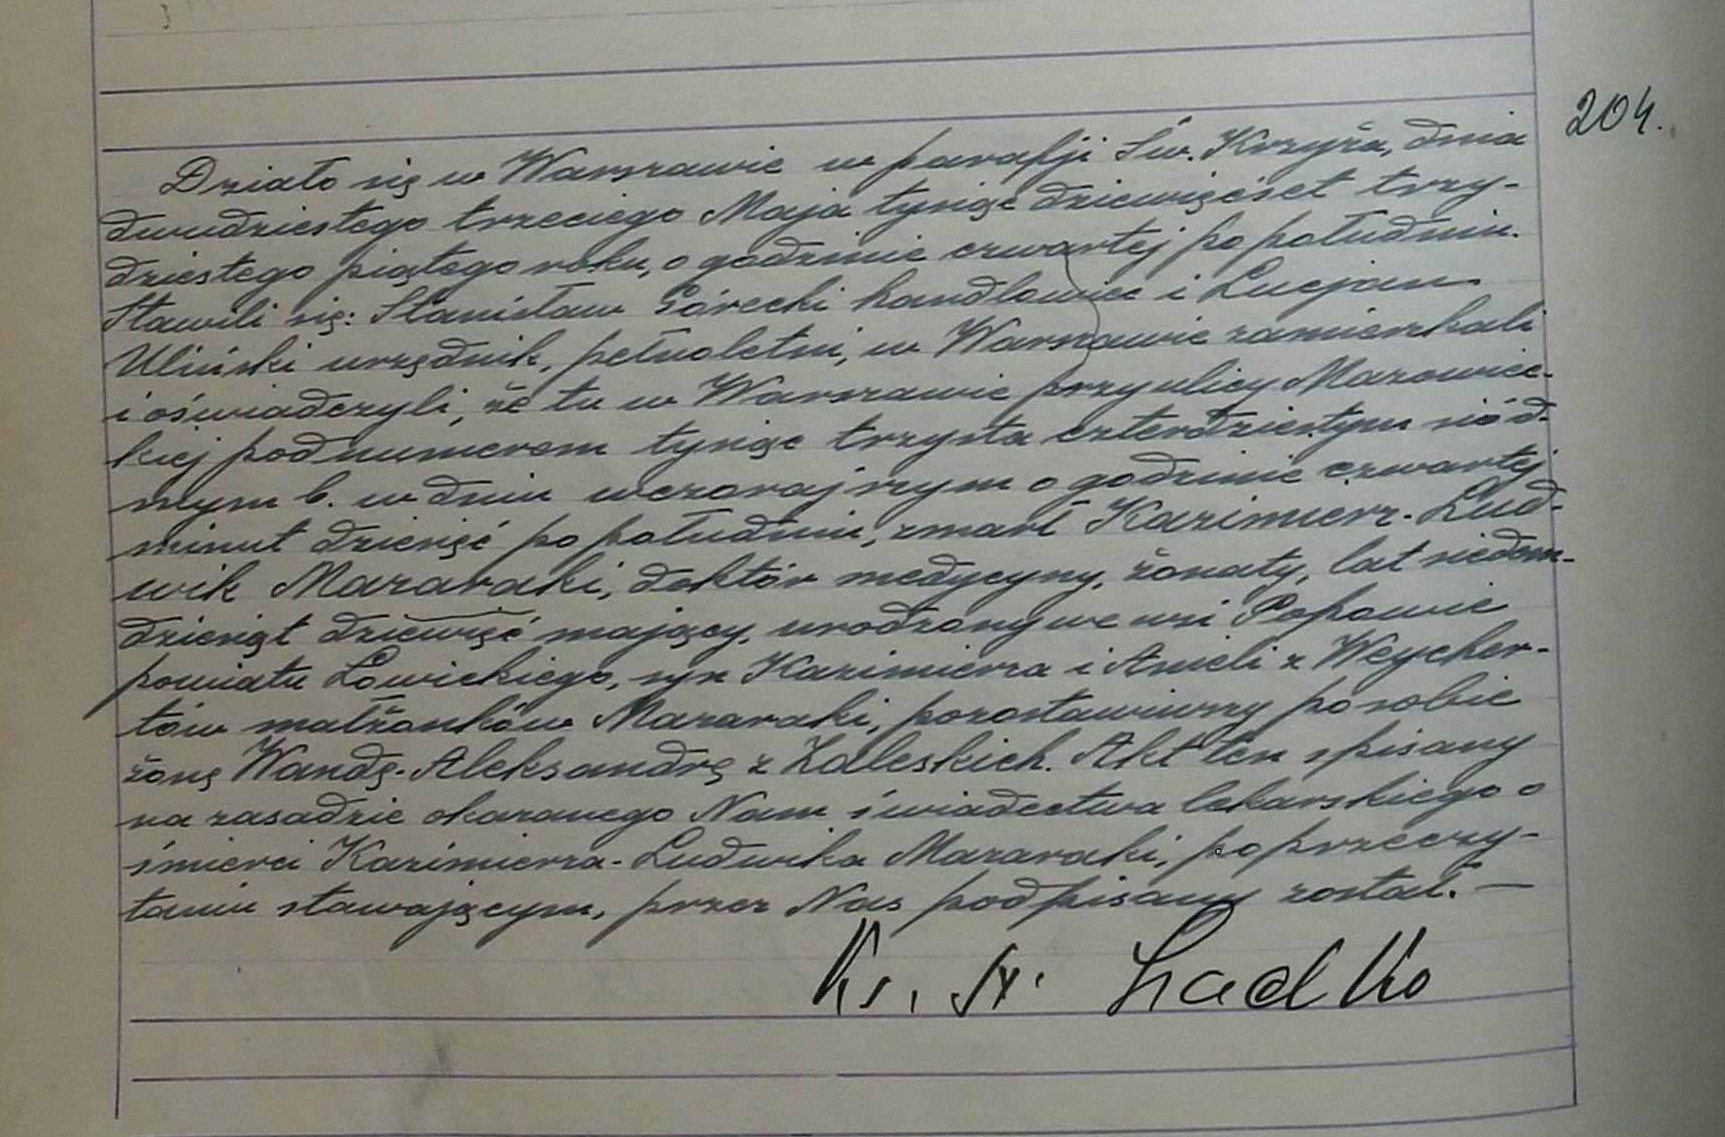 204.
Działo się w Warszawie w parafji Św. Krzyża, dnia
dwudziestego trzeciego Maja tysiąc dziewięćset trzy-
dziestego piątego roku, o godzinie czwartej po południu.
Stawili się: Stanisław Górecki handlowiec i Lucjan
Uliński urzędnik, pełnoletni, w Warszawie zamieszkali
i oświadczyli, że tu w Warszawie przy ulicy Mazowiec-
kiej pod numerem tysiąc trzysta czterdziestym siód-
mym b. w dniu wczorajszym o godzinie czwartej
minut dziesięć po południu, zmarł Kazimierz-Lud-
wik Mazaraki, doktór medycyny, żonaty, lat siedem-
dziesiąt dziewięć mający, urodzony we wsi Popowie
powiatu Łowickiego, syn Kazimierza i Anieli z Weycher-
tów małżonków Mazaraki, pozostawiwszy po sobie
żonę Wandę-Aleksandrę z Zaleskich. Akt ten spisany
na zasadzie okazanego Nam świadectwa lekarskiego o
śmierci Kazimierza-Ludwika Mazaraki, po przeczy-
taniu stawającym, przez Nas podpisany został. —
Ks. St.